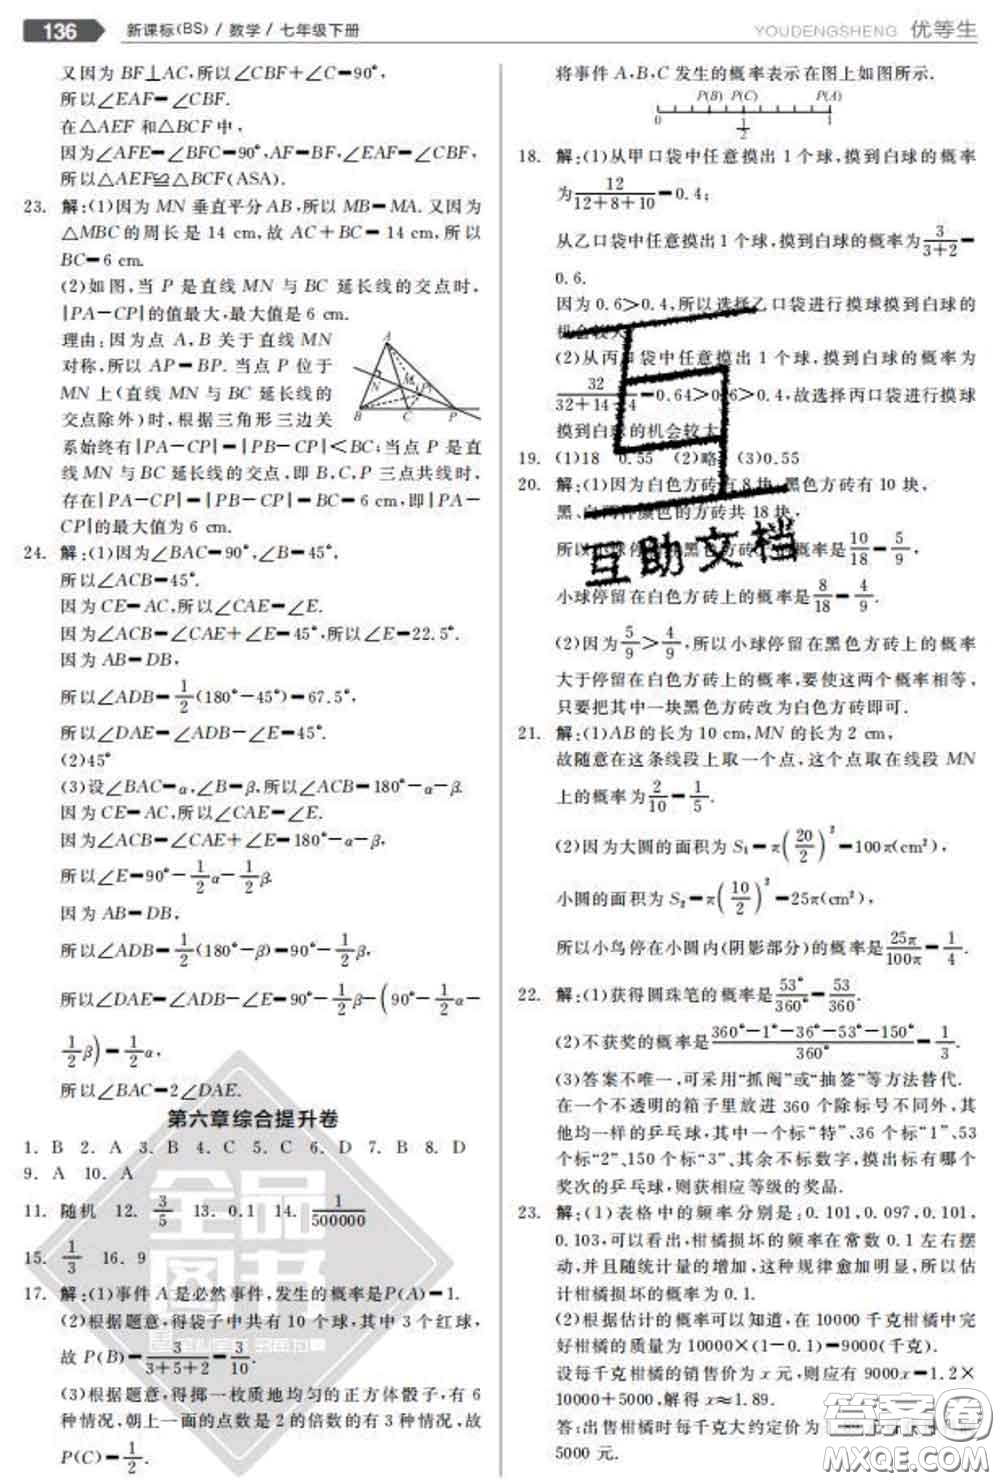 136 新课标(BS) / 数学 / 七年级下册
YOUDENGSHENG 优等生
又因为 BF⊥AC,所以∠CBF+∠C=90°,
所以∠EAF=∠CBF.
在△AEF 和△BCF 中,
因为∠AFE=∠BFC=90°,AF=BF,∠EAF=∠CBF,
所以△AEF≌△BCF(ASA).
23. 解:(1)因为 MN 垂直平分 AB,所以 MB=MA. 又因为
△MBC 的周长是 14 cm,故 AC+BC=14 cm,所以
BC=6 cm.
(2)如图,当 P 是直线 MN 与 BC 延长线的交点时,
|PA-CP|的值最大,最大值是 6 cm.
理由:因为点 A,B 关于直线 MN
对称,所以 AP=BP. 当点 P 位于
MN 上(直线 MN 与 BC 延长线的
交点除外)时,根据三角形三边关
系始终有|PA-CP|=|PB-CP|<BC;当点 P 是直
线 MN 与 BC 延长线的交点,即 B,C,P 三点共线时,
存在|PA-CP|=|PB-CP|=BC=6 cm,即|PA-
CP|的最大值为 6 cm.
A
N
M
B
C
P
24. 解:(1)因为∠BAC=90°,∠B=45°,
所以∠ACB=45°.
因为 CE=AC,所以∠CAE=∠E.
因为∠ACB=∠CAE+∠E=45°,所以∠E=22.5°.
因为 AB=DB,
所以∠ADB=1/2(180°-45°)=67.5°,
所以∠DAE=∠ADB-∠E=45°.
(2)45°
(3)设∠BAC=α,∠B=β,所以∠ACB=180°-α-β.
因为 CE=AC,所以∠CAE=∠E.
因为∠ACB=∠CAE+∠E=180°-α-β,
所以∠E=90°-1/2α-1/2β.
因为 AB=DB,
所以∠ADB=1/2(180°-β)=90°-1/2β,
所以∠DAE=∠ADB-∠E=90°-1/2β-(90°-1/2α-
1/2β)=1/2α,
所以∠BAC=2∠DAE.
第六章综合提升卷
1. B 2. A 3. B 4. C 5. C 6. D 7. B 8. D
9. A 10. A
11. 随机 12. 3/5 13. 0.1 14. 1/500000
15. 1/3 16. 9
17. 解:(1)事件 A 是必然事件,发生的概率是P(A)=1.
(2)根据题意,得袋子中共有 10 个球,其中 3 个红球,
故 P(B)=3/(3+5+2)=3/10.
(3)根据题意,得掷一枚质地均匀的正方体骰子,有 6
种情况,朝上一面的点数是 2 的倍数的有 3 种情况,故
P(C)=1/2.
将事件 A,B,C 发生的概率表示在图上如图所示.
P(B) P(C) P(A)
0 1/2 1
18. 解:(1)从甲口袋中任意摸出 1 个球,摸到白球的概率
为12/(12+8+10)=0.4;
从乙口袋中任意摸出 1 个球,摸到白球的概率为3/(3+2)=
0.6.
因为 0.6>0.4,所以选择乙口袋进行摸球摸到白球的
机会较大.
(2)从丙口袋中任意摸出 1 个球,摸到白球的概率为
32/(32+14+4)=0.64>0.6>0.4,故选择丙口袋进行摸球
摸到白球的机会较大.
19. (1)18 0.55 (2)略 (3)0.55
20. 解:(1)因为白色方砖有 8 块,黑色方砖有 10 块,
黑、白两种颜色的方砖共 18 块,
所以小球停留在黑色方砖上的概率是10/18=5/9,
小球停留在白色方砖上的概率是8/18=4/9.
(2)因为5/9>4/9,所以小球停留在黑色方砖上的概率
大于停留在白色方砖上的概率,要使这两个概率相等,
只要把其中一块黑色方砖改为白色方砖即可.
21. 解:(1)AB 的长为 10 cm,MN 的长为 2 cm,
故随意在这条线段上取一个点,这个点取在线段 MN
上的概率为2/10=1/5.
(2)因为大圆的面积为 S₁=π(20/2)²=100π(cm²),
小圆的面积为 S₂=π(10/2)²=25π(cm²),
所以小鸟停在小圆内(阴影部分)的概率是25π/100π=1/4.
22. 解:(1)获得圆珠笔的概率是53°/360°=53/360.
(2)不获奖的概率为(360°-1°-36°-53°-150°)/360°=1/3.
(3)答案不唯一,可采用“抓阄”或“抽签”等方法替代.
在一个不透明的箱子里放进 360 个除标号不同外,其
他均一样的乒乓球,其中一个标“特”、36 个标“1”、53
个标“2”、150 个标“3”、其余不标数字,摸出标有哪个
奖次的乒乓球,则获相应等级的奖品.
23. 解:(1)表格中的频率分别是:0.101,0.097,0.101,
0.103,可以看出:柑橘损坏的频率在常数 0.1 左右摆
动,并且随统计量的增加,这种规律愈加明显,所以估
计柑橘损坏的概率为 0.1.
(2)根据估计的概率可以知道,在 10000 千克柑橘中完
好柑橘的质量为 10000×(1-0.1)=9000(千克).
设每千克柑橘的销售价为 x 元,则应有 9000x=1.2×
10000+5000,解得 x≈1.89.
答:出售柑橘时每千克大约定价为 1.89
5000 元.
互助文档
全品图书
答案圈
MXQE.COM